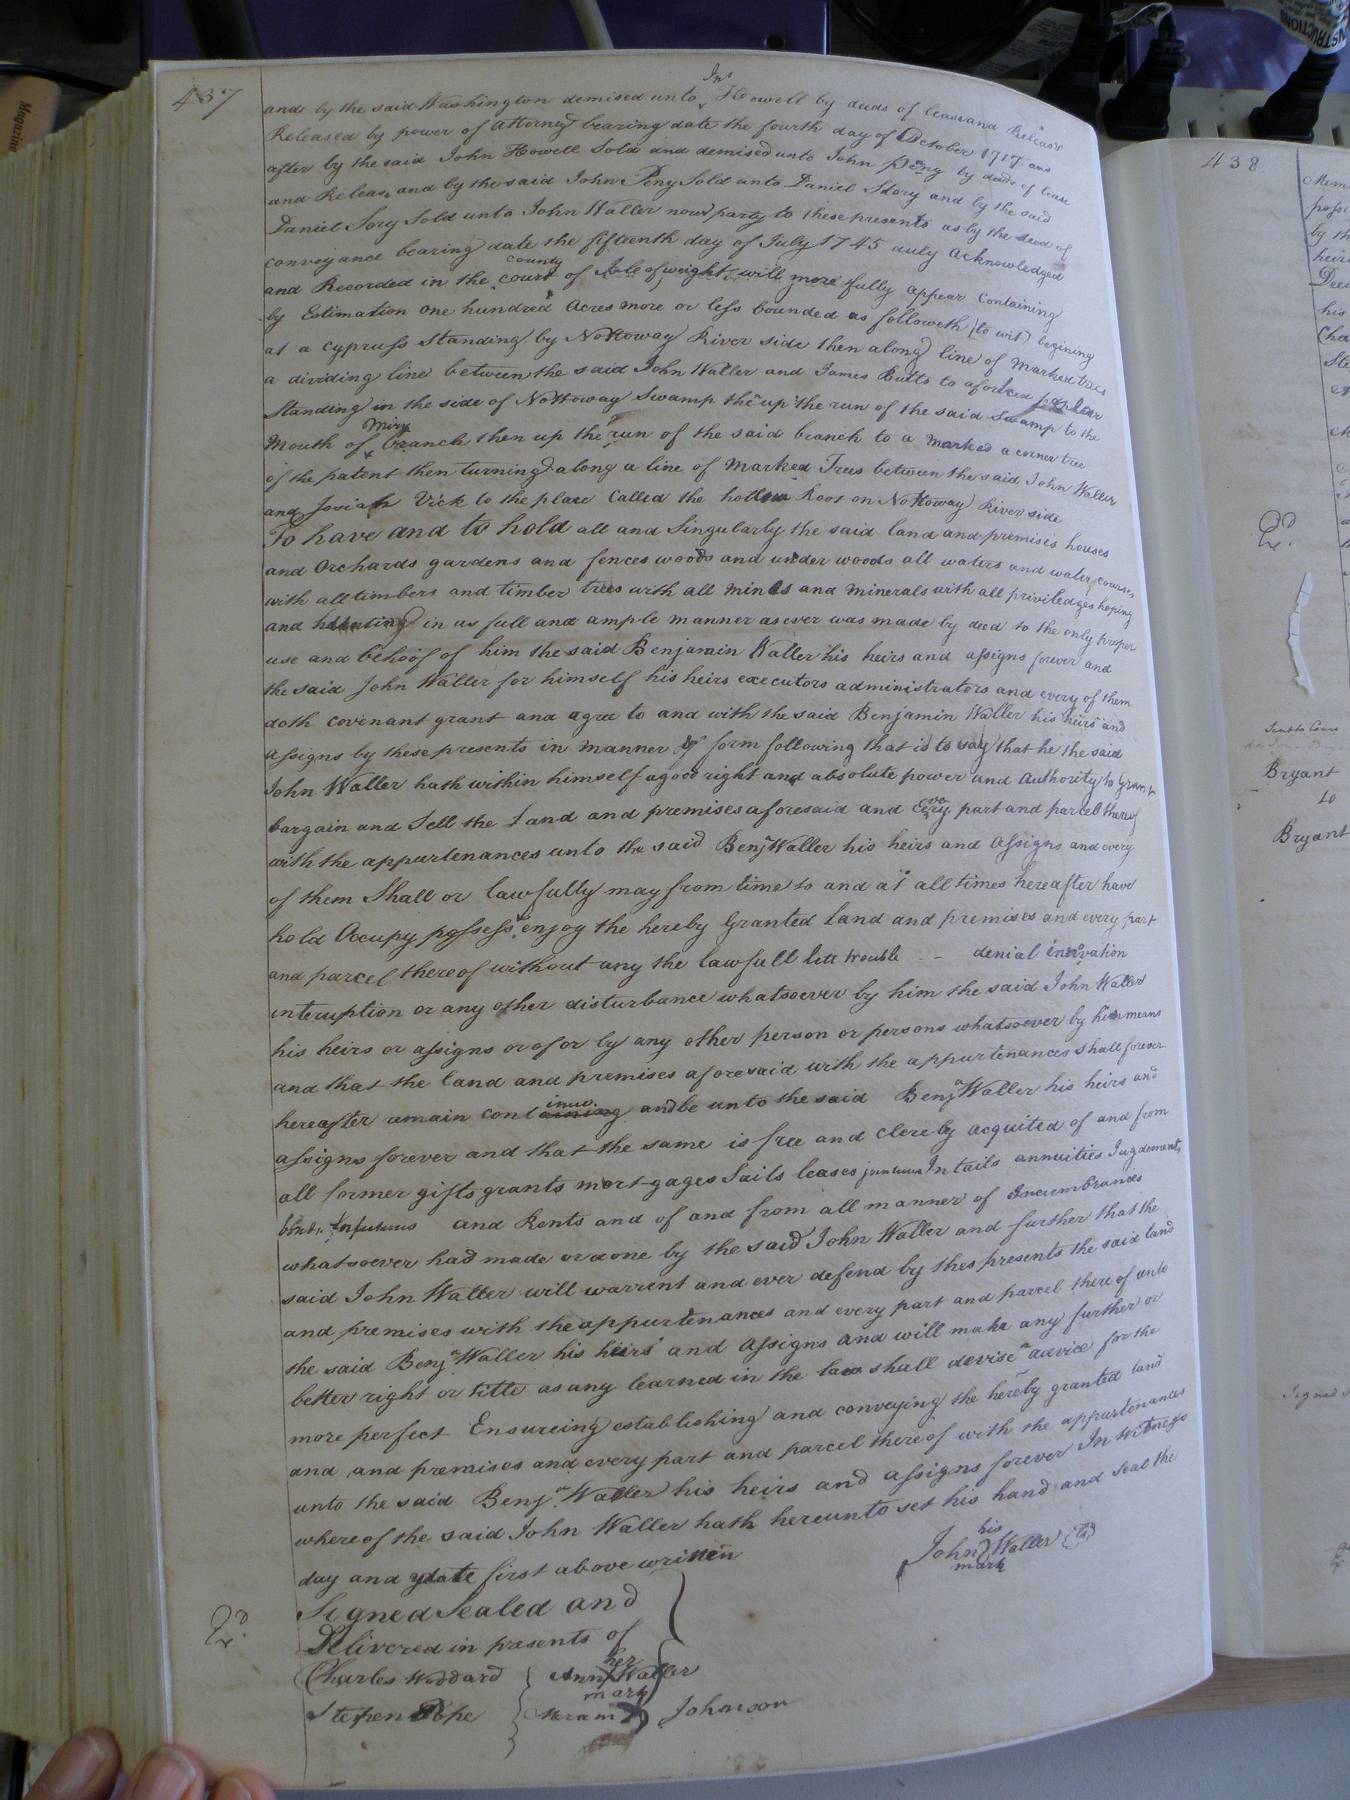 437
and by the said Washington demised unto Jno Howell by deeds of lease and Release
Released by power of attorney bearing date the fourth day of October 1717 and
after by the said John Howell Sold and demised unto John Peny by deeds of lease
and Releas and by the said John Peny Sold unto Daniel Story and by the said
Daniel Sory Sold unto John Waller now party to these presents as by the deed of
conveyance bearing date the fifteenth day of July 1745 duly acknowledged
and Recorded in the county court of Isle of weight will more fully appear Containing
by Estimation one hundred acres more or less bounded as followeth (to wit) begining
at a cypruss Standing by Nottoway River side then along line of Marked trees
a dividing line between the said John Waller and James Butts to a forked
Standing in the side of Nottoway Swamp then up the run of the said Swamp to the
Mouth of Miry branch then up the run of the said branch to a marked a corner tree
of the patent then turning along a line of Marked Trees between the said John Waller
and Josiah Vick to the place Called the hollow Root on Nottoway River side
To have and to hold all and Singularly the said land and premises houses
and Orchards gardens and fences woods and under woods all waters and water courses
with all timbers and timber trees with all mines and minerals with all priviledges hoping
and hunting in as full and ample manner as ever was made by deed to the only proper
use and behoof of him the said Benjamin Waller his heirs and assigns forever and
the said John Waller for himself his heirs executors administrators and every of them
doth covenant grant and agree to and with the said Benjamin Waller his heirs and
assigns by these presents in manner & form following that is to say that he the said
John Waller hath within himself a good right and absolute power and authority to grant
bargain and Sell the Land and premises aforesaid and every part and parcel thereof
with the appurtenances unto the said Benja Waller his heirs and assigns and every
of them Shall or lawfully may from time to and at all times hereafter have
hold Occupy possess & enjoy the hereby Granted Land and premises and every part
and parcel thereof without any the lawfull lett trouble -- denial
interuption or any other disturbance whatsoever by him the said John Waller
his heirs or assigns or of or by any other person or persons whatsoever by his means
and that the land and premises aforesaid with the appurtenances shall forever
hereafter remain continue and be unto the said Benja Waller his heirs and
assigns forever and that the same is free and clereby acquited of and from
all former gifts grants mortgages Sails leases Intails annuities Jugdements
and Rents and of and from all manner of Incumbrances
whatsoever had made or done by the said John Waller and further that the
said John Waller will warrent and ever defend by thes presents the said land
and premises with the appurtenances and every part and parcel thereof unto
the said Benja Waller his heirs and assigns and will make any further or
better right or title as any learned in the law shall devise advice for the
more perfect Ensureing establishing and conveying the hereby granted land
and and premises and every part and parcel thereof with the appurtenances
unto the said Benja Waller his heirs and assigns forever In Witness
whereof the said John Waller hath hereunto set his hand and seal the
day and date first above written
his
John Waller
mark
Signed Sealed and
Delivered in presents of
Charles Woddard
her
Ann Waller
mark
Stephen Pope
Johnson
438
Bryant
to
Bryant